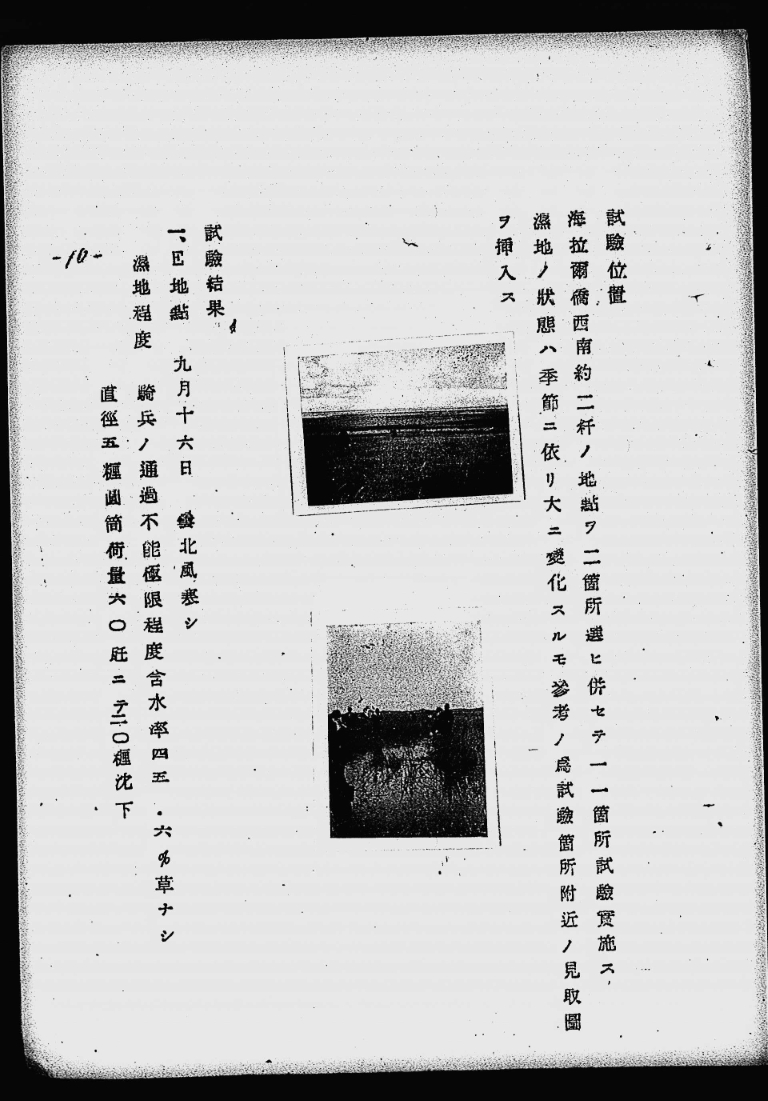 試驗位置
海拉爾僑西南約二粁ノ地點ヲ二箇所選ヒ併セテ一一箇所試驗實施ス
濕地ノ狀態ハ季節ニ依リ大ニ變化スルモ參考ノ爲試驗箇所附近ノ見取圖
ヲ挿入ス
試驗結果
一、E地點 九月十六日 曇北風寒シ
濕地程度 騎兵ノ通過不能極限程度含水率四五.六%草ナシ
直徑五糎圓筒荷量六〇瓩ニテ二〇糎沈下
-10-